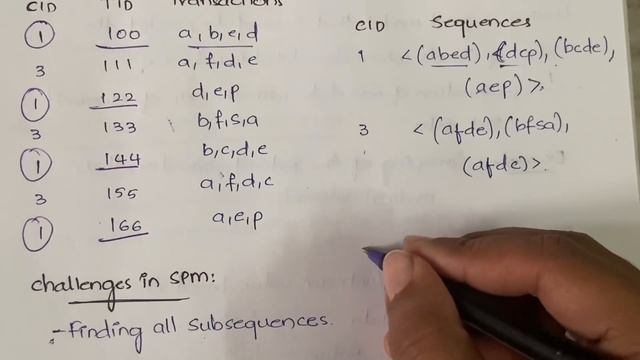 CID TID Transactions
1 100 a, b, e, d
3 111 a, f, d, e
1 122 d, e, p
3 133 b, f, s, a
1 144 b, c, d, e
3 155 a, f, d, c
1 166 a, e, p
CID Sequences
1 <(abed), (dcp), (bcde),
(aep)>,
3 <(afde), (bfsa),
(afdc)>.
challenges in spm:
- Finding all subsequences.